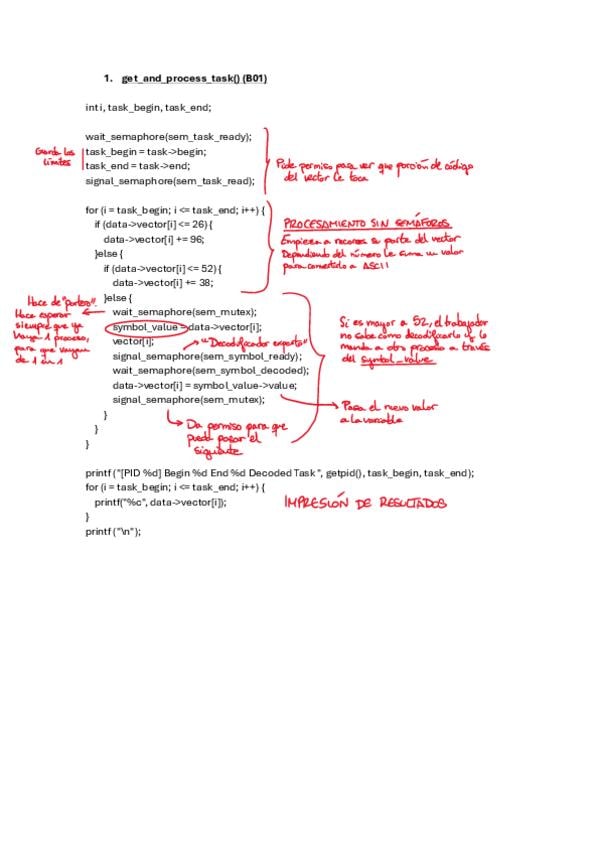 1. get_and_process_task() (B01)
int i, task_begin, task_end;
wait_semaphore(sem_task_ready);
Guarda los
límites
task_begin = task->begin;
task_end = task->end;
signal_semaphore(sem_task_read);
Pide permiso para ver que porción de código
del vector le toca
for (i = task_begin; i <= task_end; i++) {
if (data->vector[i] <= 26) {
data->vector[i] += 96;
}else {
if (data->vector[i] <= 52) {
data->vector[i] += 38;
PROCESAMIENTO SIN SEMÁFOROS
Empieza a recorrer su parte del vector
Dependiendo del número le suma un valor
para convertirlo a ASCII
}else {
wait_semaphore(sem_mutex);
symbol_value = data->vector[i];
vector[i];
signal_semaphore(sem_symbol_ready);
wait_semaphore(sem_symbol_decoded);
data->vector[i] = symbol_value->value;
signal_semaphore(sem_mutex);
Hace de "portero".
Hace esperar
siempre que ya
haya 1 proceso,
para que vayan
de 1 en 1
"Decodificador experto"
Si es mayor a 52, el trabajador
no sabe cómo decodificarlo y lo
manda a otro proceso a través
del symbol_value
Pasa el nuevo valor
a la variable
Da permiso para que
pueda pasar el
siguiente
}
}
}
printf ("[PID %d] Begin %d End %d Decoded Task", getpid(), task_begin, task_end);
for (i = task_begin; i <= task_end; i++) {
printf("%c", data->vector[i]);
}
printf ("\n");
IMPRESIÓN DE RESULTADOS